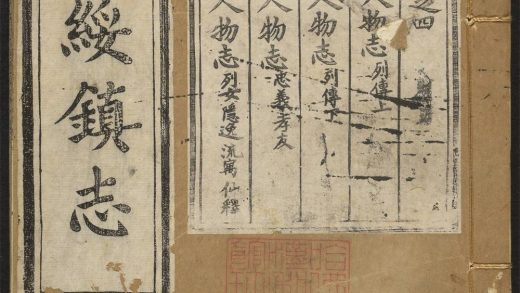 綏鎮志
之四
人物志列傳上
人物志列傳下
人物志忠義孝友
人物志列女隱逸流寓仙釋